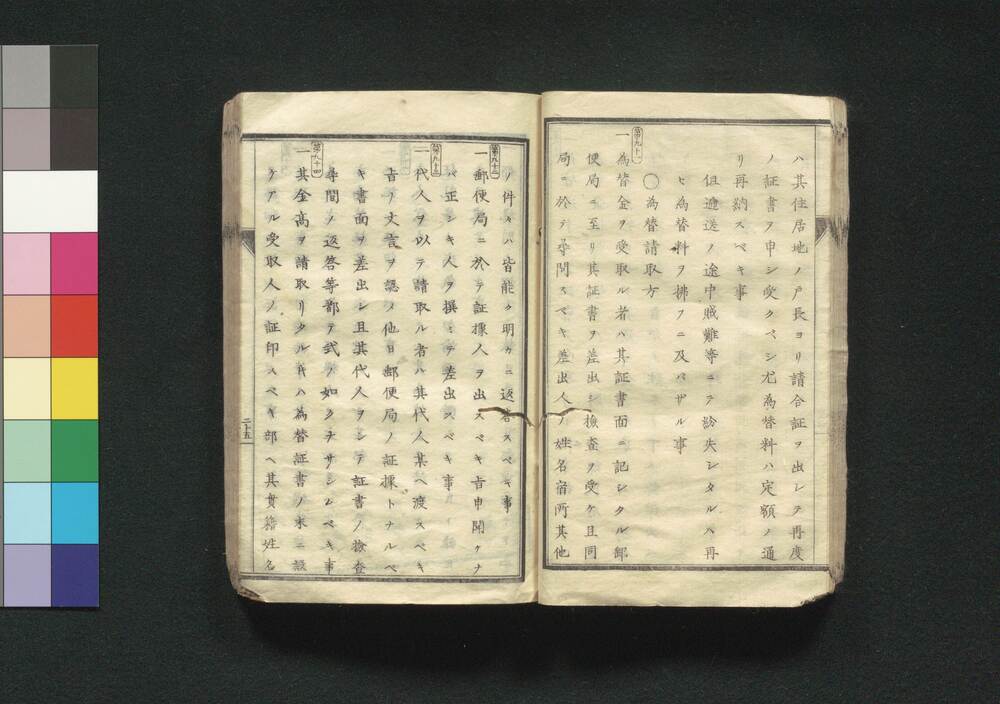 ハ其住居地ノ戸長ヨリ請合証ヲ出シテ再度
ノ証書ヲ申シ受クベシ尤為替料ハ定額ノ通
リ再納スベキ事
但逓送ノ途中賊難等ニテ紛失シタルハ再
ヒ為替料ヲ拂フニ及バザル事
〇為替請取方
第九十一
一為替金ヲ受取ル者ハ其証書面ニ記シタル郵
便局ニ至リ其証書ヲ差出シ撿査ヲ受ケ且同
局ニ於テ尋問スベキ差出人ノ姓名宿所其他
ノ件々ハ皆能ク明カニ返答スベキ事
第九十二
一郵便局ニ於テ証據人ヲ出スベキ旨申聞ケナ
バ正シキ人ヲ撰ミテ差出スベキ事
第九十三
一代人ヲ以テ請取ル者ハ其代人某ヘ渡スベキ
旨ノ文言ヲ認メ他日郵便局ノ証據トナルベ
キ書面ヲ差出シ且其代人ヲシテ証書ノ撿査
尋問ノ返答等都テ式ノ如クナサシムベキ事
第九十四
一其金高ヲ請取リタル片ハ為替証書ノ末ニ設
ケアル受取人ノ証印スベキ部ヘ其貫籍姓名
二十五